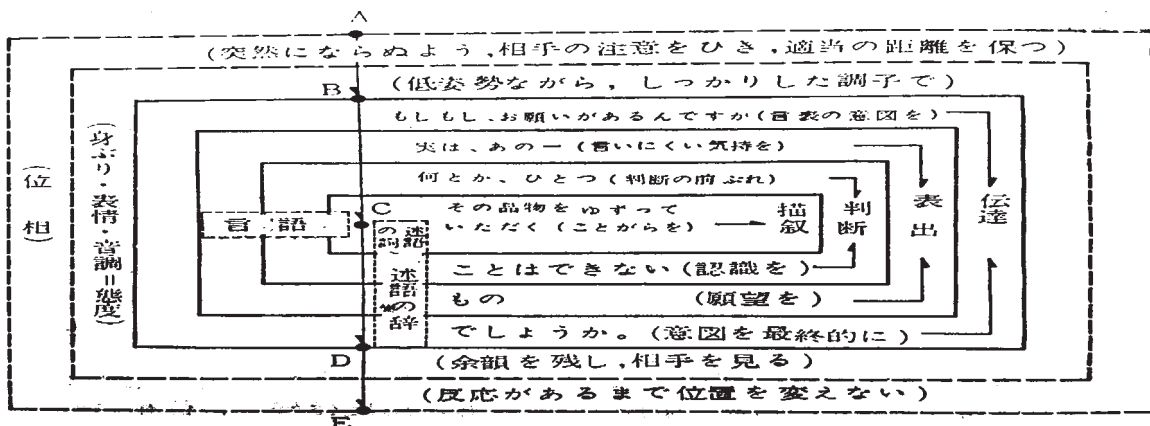 A
(突然にならぬよう,相手の注意をひき,適当の距離を保つ)
(低姿勢ながら,しっかりした調子で)
B
もしもし、お願いがあるんですが(言表の意図を)
実は、あのー(言いにくい気持を)
何とか、ひとつ(判断の前ぶれ)
その品物をゆずって
いただく(ことがらを)
描叙
判断
表出
伝達
C
言語
(位相)
(身ぶり・表情・音調=態度)
述語の詞
述語の辞
ことはできない(認識を)
もの(願望を)
でしょうか。(意図を最終的に)
D
(余韻を残し,相手を見る)
(反応があるまで位置を変えない)
E